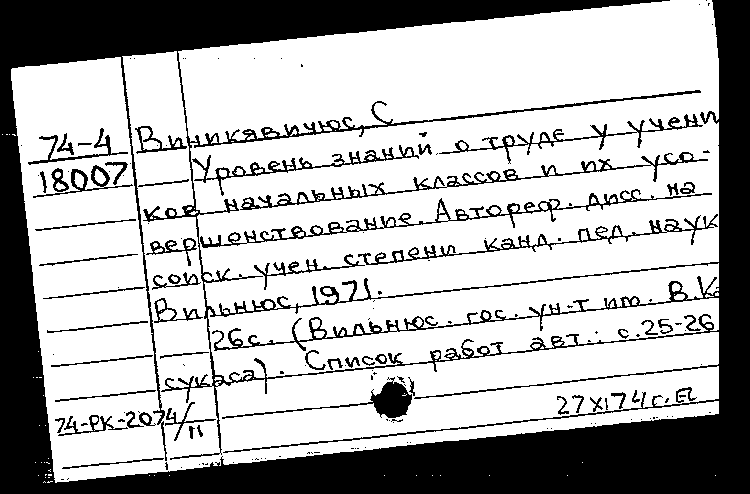 74-4
18007
Виникявичюс, С
Уровень знаний о труде у учени
ков начальных классов и их усо-
вершенствование. Автореф. дисс. на
соиск. учен. степени канд. пед. наук
Вильнюс, 1971.
26с. (Вильнюс. гос. ун-т им. В. Ка
сукаса). Список работ авт.: с.25-26
74-РК-2074/11
27XI74г. EL